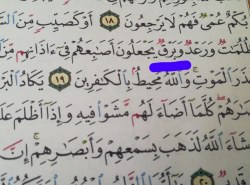 بُكْمٌ عُمْىٌ فَهُمْ لَا يَرْجِعُونَ ١٨ أَوْ كَصَيِّبٍ مِّنَ
ظُلُمَٰتٌ وَرَعْدٌ وَبَرْقٌ يَجْعَلُونَ أَصَٰبِعَهُمْ فِىٓ ءَاذَانِهِم مِّنَ
الْمَوْتِ وَاللَّهُ مُحِيطٌۢ بِالْكَٰفِرِينَ ١٩ يَكَادُ
كُلَّمَآ أَضَآءَ لَهُم مَّشَوْا۟ فِيهِ وَإِذَآ أَظْلَمَ
شَآءَ اللَّهُ لَذَهَبَ بِسَمْعِهِمْ وَأَبْصَٰرِهِمْ إِنَّ
٢٠